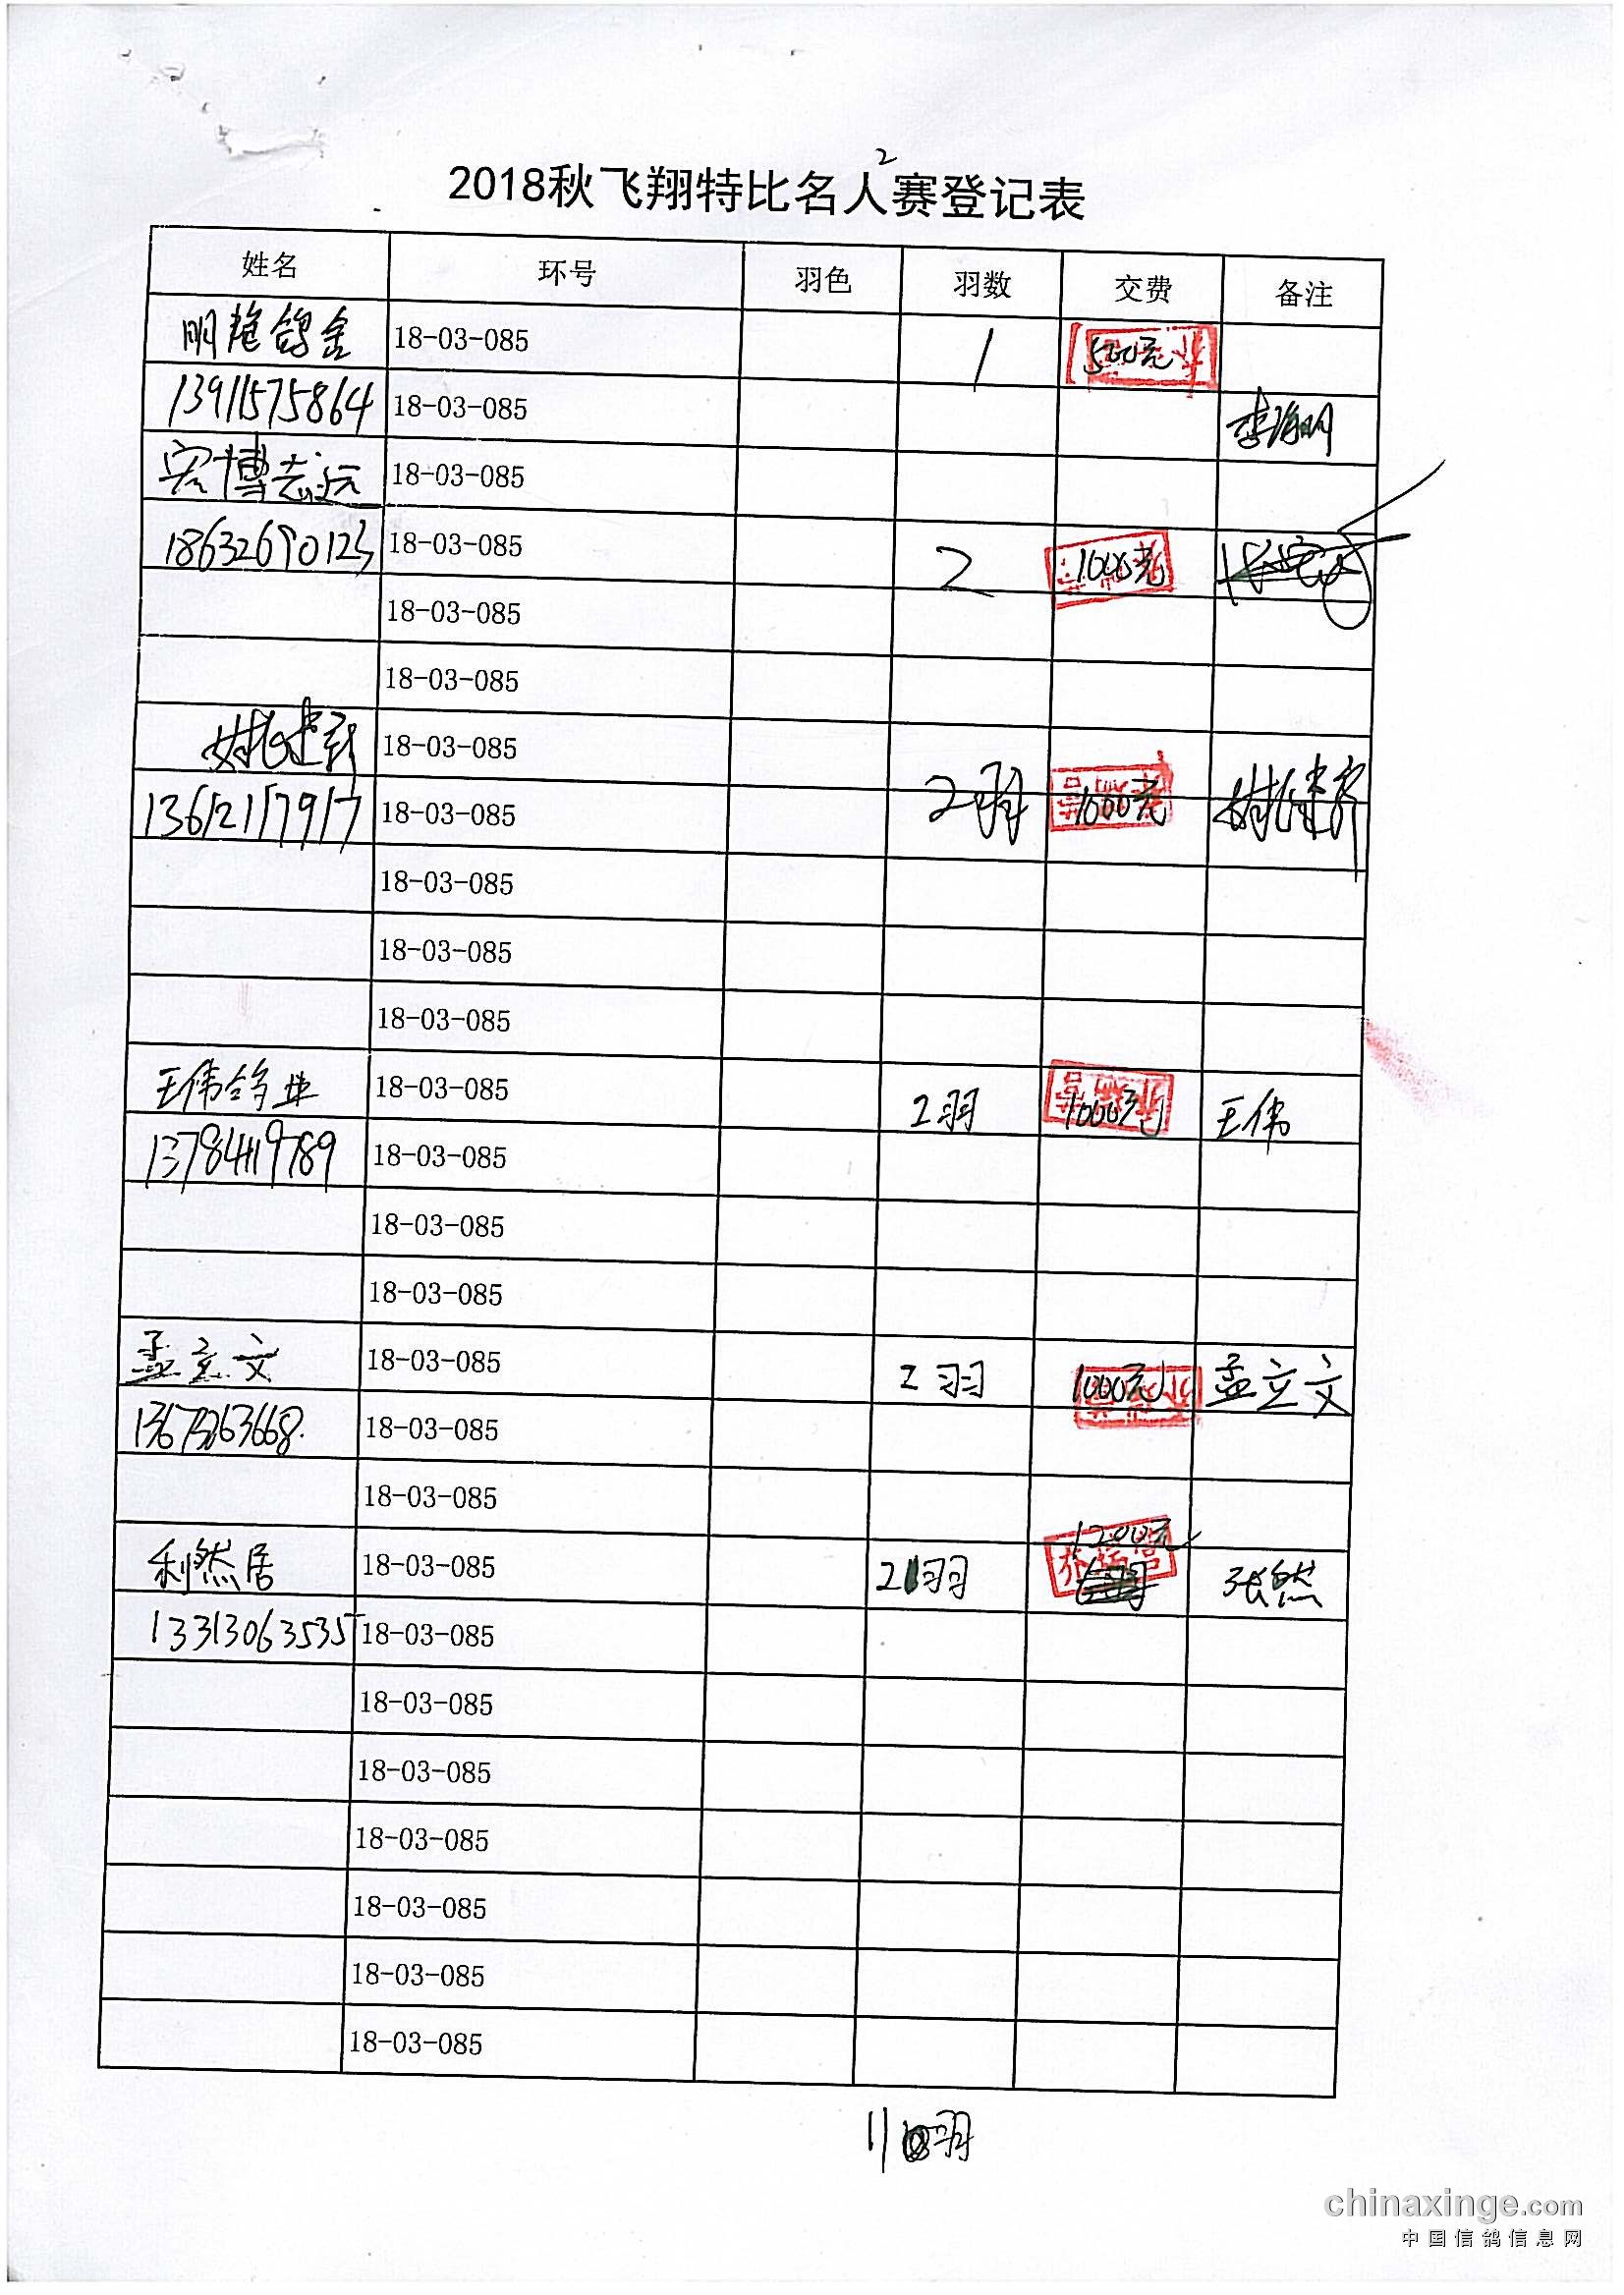 2
2018秋飞翔特比名人赛登记表
姓名 环号 羽色 羽数 交费 备注
明艳鸽舍 18-03-085 1 500元
13911575864 18-03-085 李海明
宏博志远 18-03-085
18632690123 18-03-085 2 1000元
18-03-085
18-03-085
姚建军 18-03-085
13612117917 18-03-085 2羽 1000元 姚建军
18-03-085
18-03-085
18-03-085
王伟鸽业 18-03-085 2羽 1000元 王伟
13784119789 18-03-085
18-03-085
18-03-085
孟立文 18-03-085 2羽 1000元 孟立文
18-03-085
18-03-085
利然居 18-03-085 2羽 1200元 张然
13313063535 18-03-085
18-03-085
18-03-085
18-03-085
18-03-085
18-03-085
18-03-085
11羽
chinaxinge.com
中国信鸽信息网